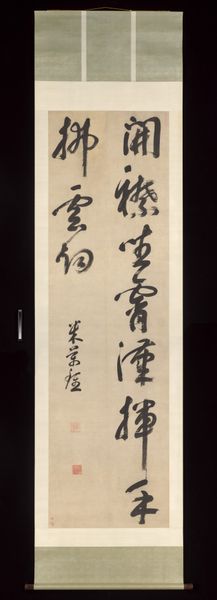 開襟坐霄漢揮手
拂雲烟
米萬鍾